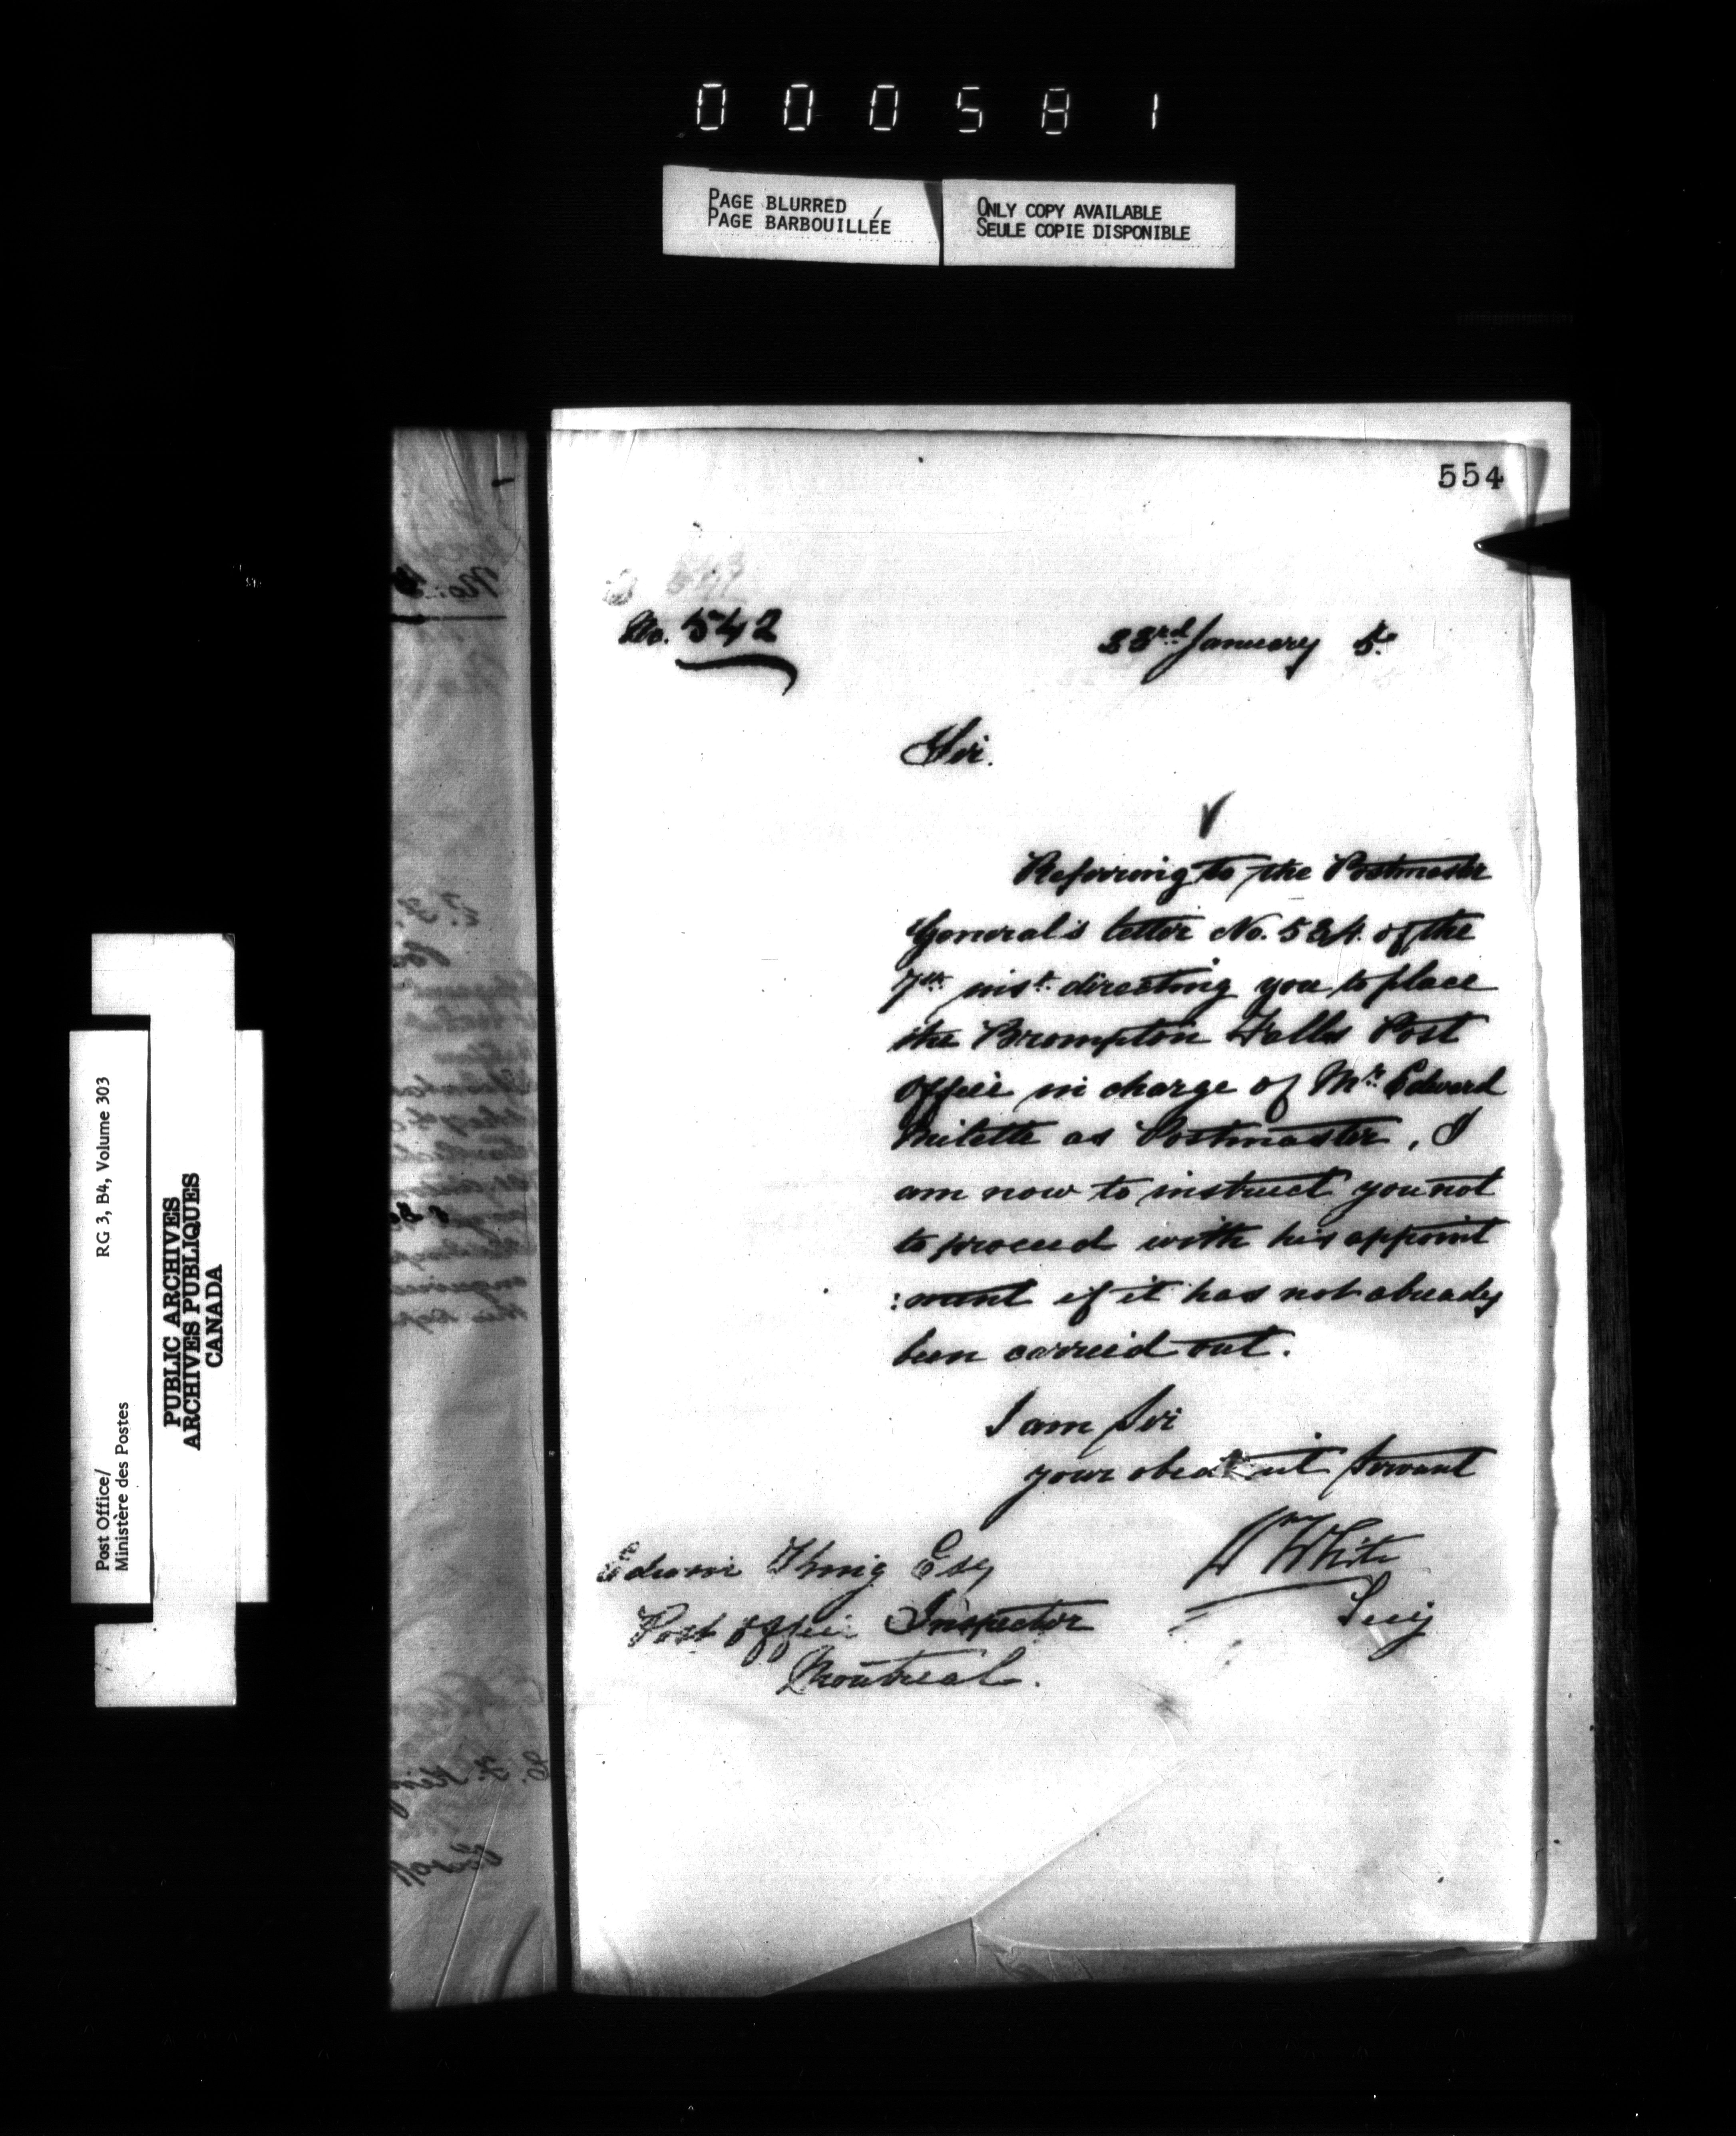 000581
PAGE BLURRED
PAGE BARBOUILLÉE
ONLY COPY AVAILABLE
SEULE COPIE DISPONIBLE
554
No. 542
23rd January 5.
Sir.
Referring to the Postmaster
General's letter No. 534 of the
7th inst. directing you to place
the Brompton Falls Post
Office in charge of Mr. Edward
Milette as Postmaster, I
am now to instruct you not
to proceed with his appoint
:ment if it has not already
been carried out.
I am Sir
your obedient Servant
Wm White
Secy
Edwin King Esq
Post Office Inspector
Montreal.
Post Office/
Ministère des Postes
RG 3, B4, Volume 303
PUBLIC ARCHIVES
ARCHIVES PUBLIQUES
CANADA